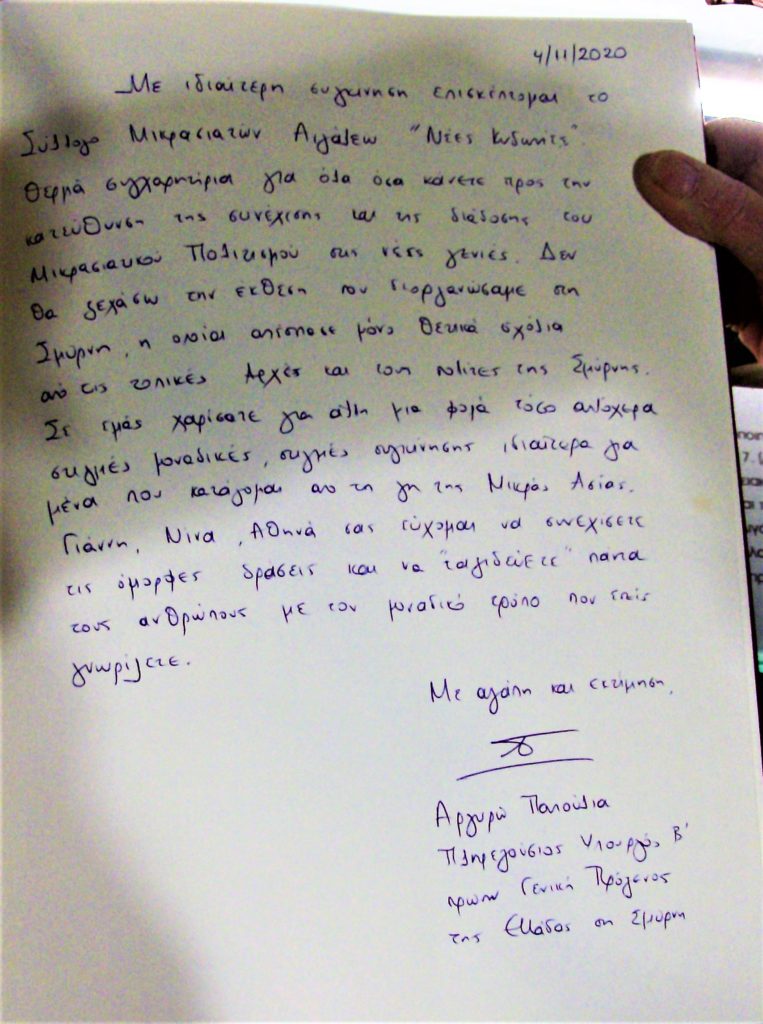 4/11/2020
Με ιδιαίτερη συγκίνηση επισκέπτομαι το
Σύλλογο Μικρασιατών Αιγάλεω "Νέες Κυδωνίες".
Θερμά συγχαρητήρια για όλα όσα κάνετε προς την
κατεύθυνση της συνέχισης και της διάδοσης του
Μικρασιατικού Πολιτισμού στις νέες γενιές. Δεν
θα ξεχάσω την έκθεση που διοργανώσαμε στη
Σμύρνη, η οποία απέσπασε μόνο θετικά σχόλια
από τις τοπικές Αρχές και τους πολίτες της Σμύρνης.
Σε εμάς χαρίσατε για άλλη μια φορά τόσο απλόχερα
στιγμές μοναδικές, στιγμές συγκίνησης ιδιαίτερα για
μένα που κατάγομαι από τη γη της Μικράς Ασίας.
Γιάννη, Νίνα, Αθηνά σας εύχομαι να συνεχίσετε
τις όμορφες δράσεις και να "ταξιδεύετε" πάντα
τους ανθρώπους με τον μοναδικό τρόπο που εσείς
γνωρίζετε.
Με αγάπη και εκτίμηση,
Αργυρώ Παπούλια
Πληρεξούσιος Υπουργός Β'
πρώην Γενική Πρόξενος
της Ελλάδος στη Σμύρνη